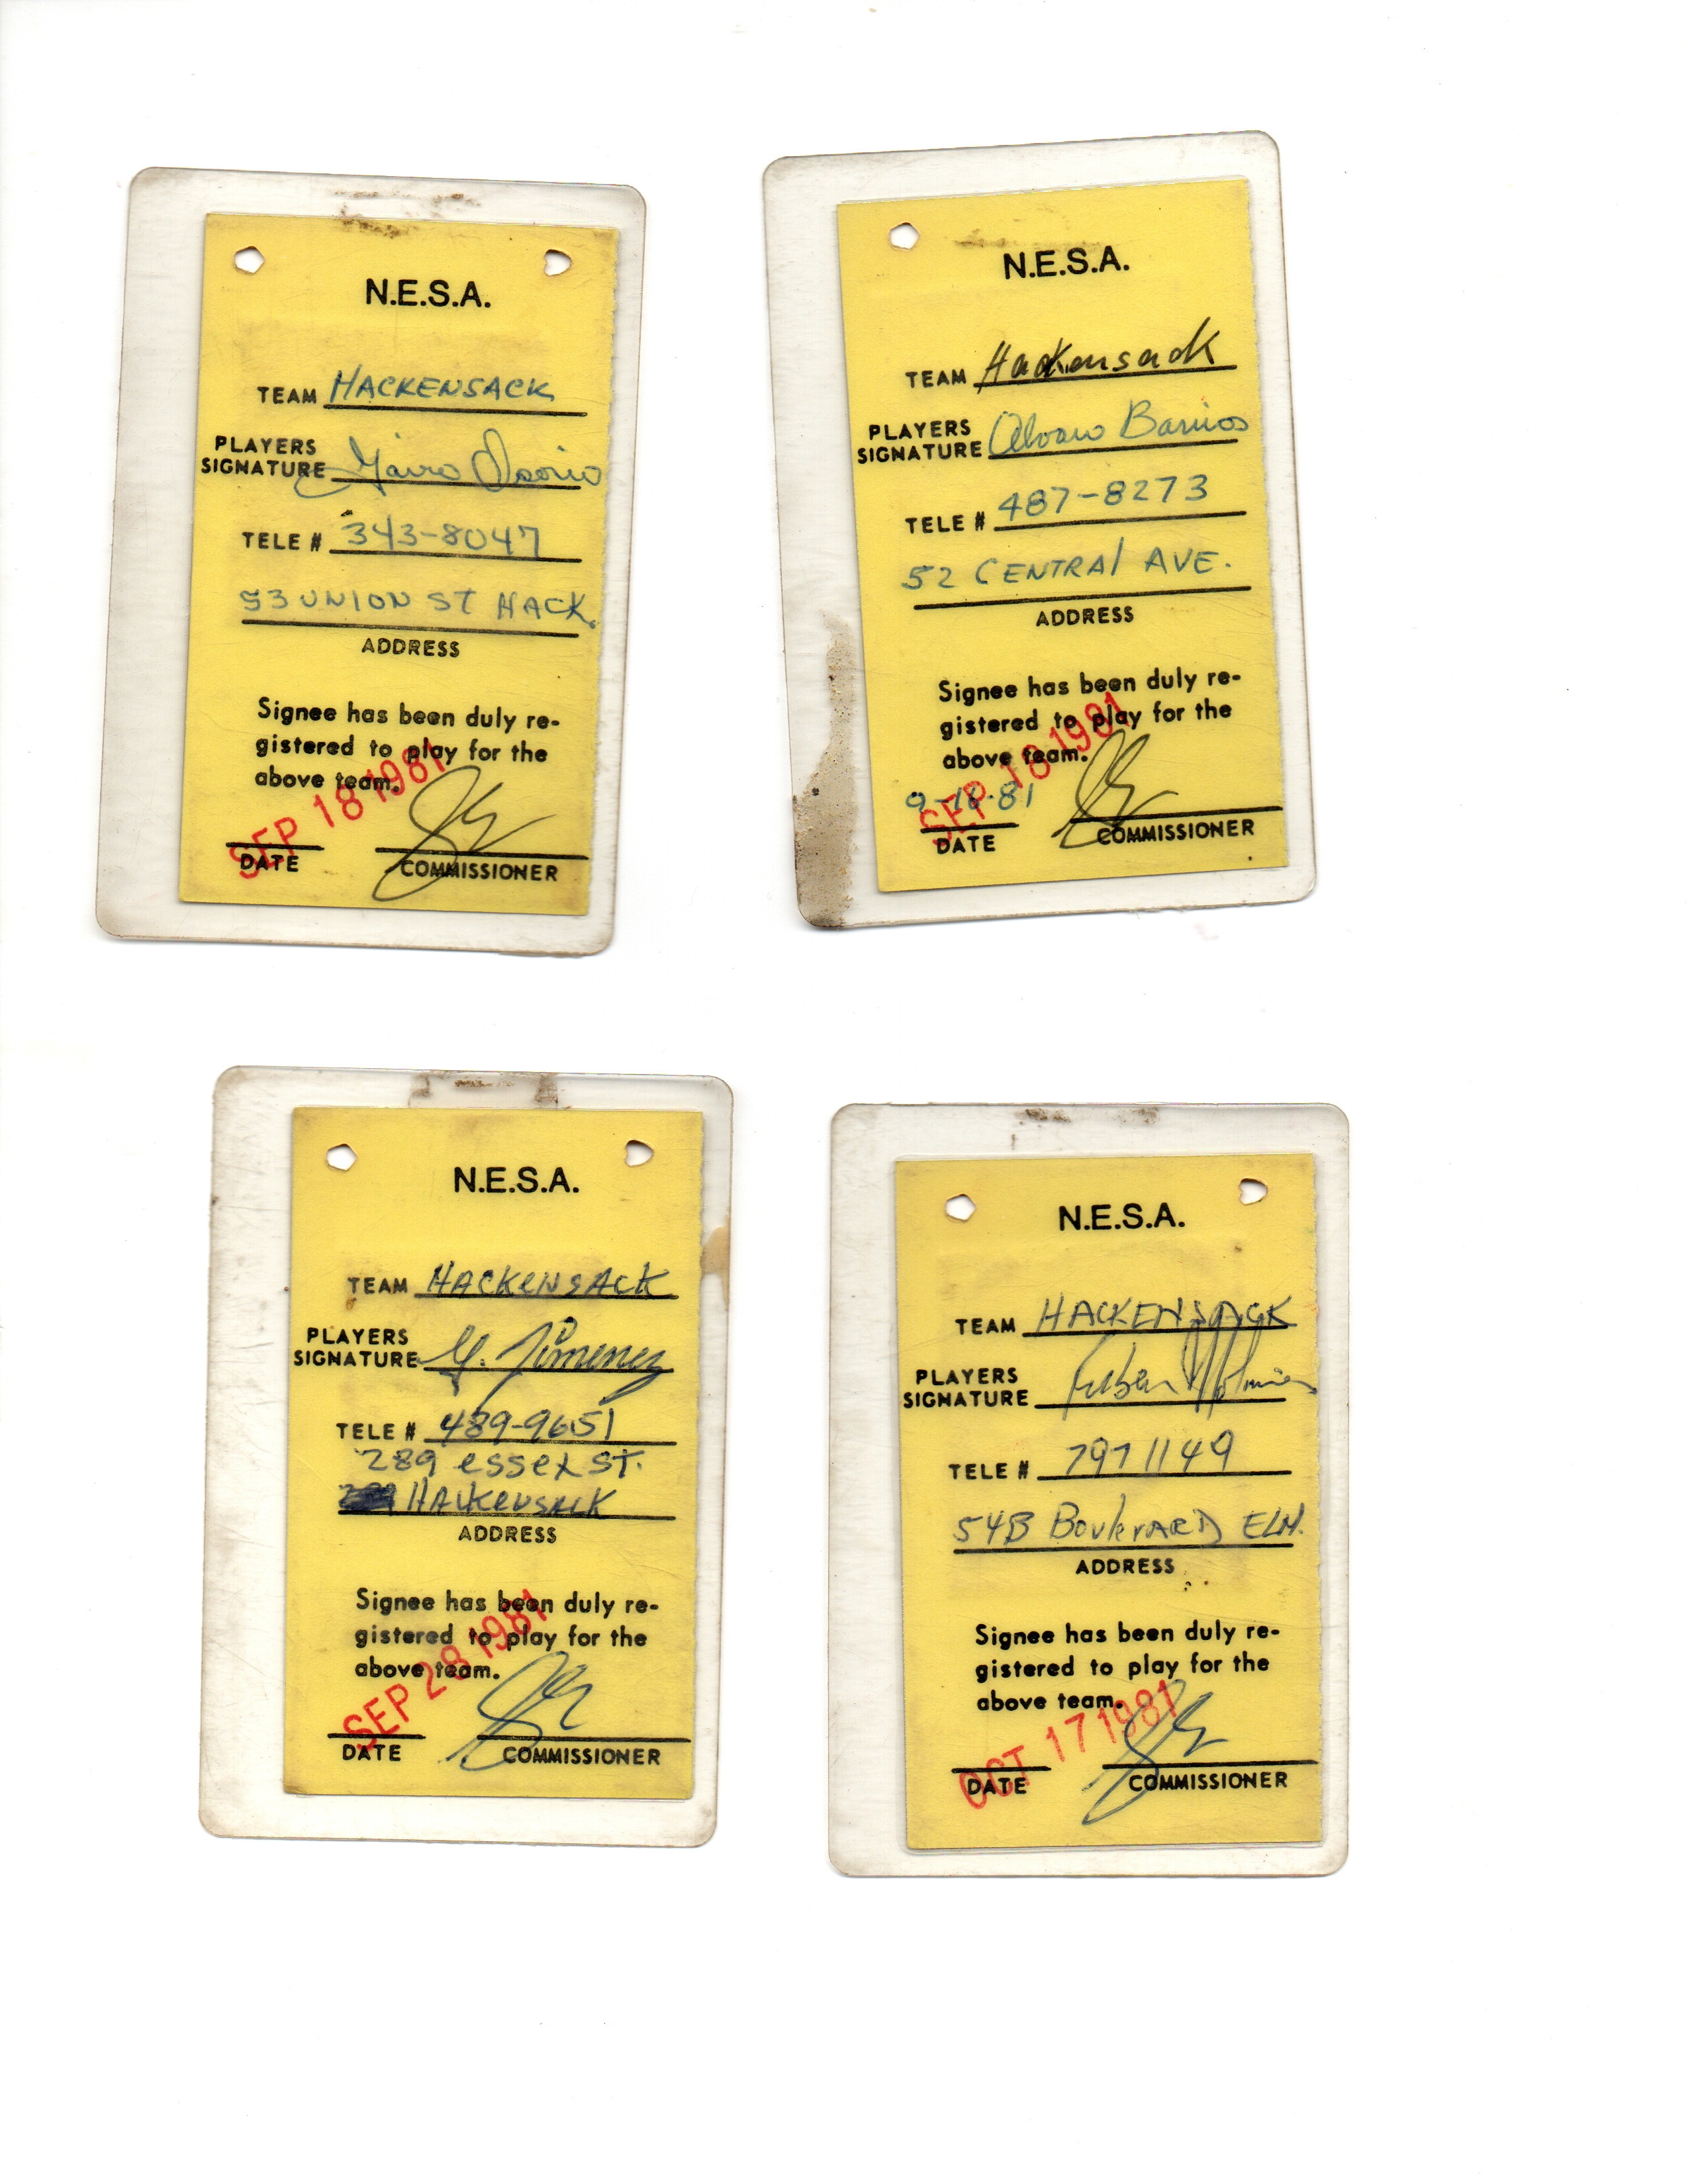 N.E.S.A.
TEAM HACKENSACK
PLAYERS
SIGNATURE Osorio
TELE # 343-8047
93 UNION ST HACK.
ADDRESS
Signee has been duly re-
gistered to play for the
above team.
SEP 18 1981
DATE COMMISSIONER
N.E.S.A.
TEAM Hackensack
PLAYERS
SIGNATURE Alvaro Barrios
TELE # 487-8273
52 CENTRAl AVE.
ADDRESS
Signee has been duly re-
gistered to play for the
above team.
SEP 18 1981
9-18-81
DATE COMMISSIONER
N.E.S.A.
TEAM HACKENSACK
PLAYERS
SIGNATURE Y. Jimenez
TELE # 489-9651
289 essex ST.
HACKENSACK
ADDRESS
Signee has been duly re-
gistered to play for the
above team.
SEP 28 1981
DATE COMMISSIONER
N.E.S.A.
TEAM HACKENSACK
PLAYERS
SIGNATURE
TELE # 797 1149
54B BoulevARD ELM.
ADDRESS
Signee has been duly re-
gistered to play for the
above team.
OCT 17 1981
DATE COMMISSIONER